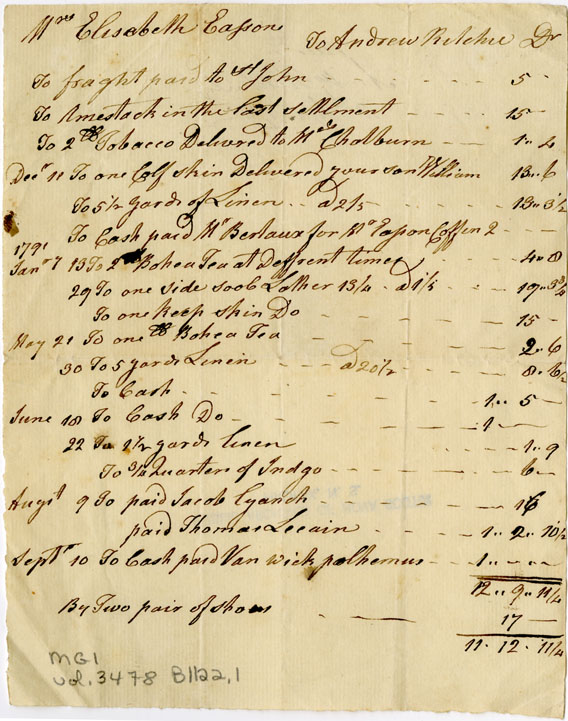 Mrs Elisabeth Easson To Andrew Ritchie Dr
To fraght paid to St John 5 —
To Amestock in the Last settlment 15 —
To 2 lb Tobacco Delivered to Cholburn 1 " 4
Decr 11 To one Colf skin Delivered your son William 13 " 6
To 5 1/2 yards of Linen a 2/5 13 " 3 1/2
To Cash paid Mr Bertaux for Mr Eason Coffen 2 — —
1791
Janry 13 To 2 lb Bohea Tea at Deffrent times 4 " 8
29 To one side soob Lather 13/4 a 1/5 19 " 3 3/4
To one keep skin Do 15 —
May 21 To one lb Bohea Tea 2 " 6
30 To 5 yards Linen a 20 1/2 8 " 6 1/2
To Cash 1 " 5 —
June 18 To Cash Do 1 —
22 To 1 1/2 yards linen 1 " 9
To 3/4 Quarter of Indgo 6 —
Augst 9 To paid Jacob 16
paid Thomas Lecain 1 " 2 " 10 1/2
Septr 10 To Cash paid Van wick polhemus 1 " — " —
12 " 9 " 11/4
By Two pair of shous 17 —
11 " 12 " 11/4
MG1
vol. 3478 B1122,1